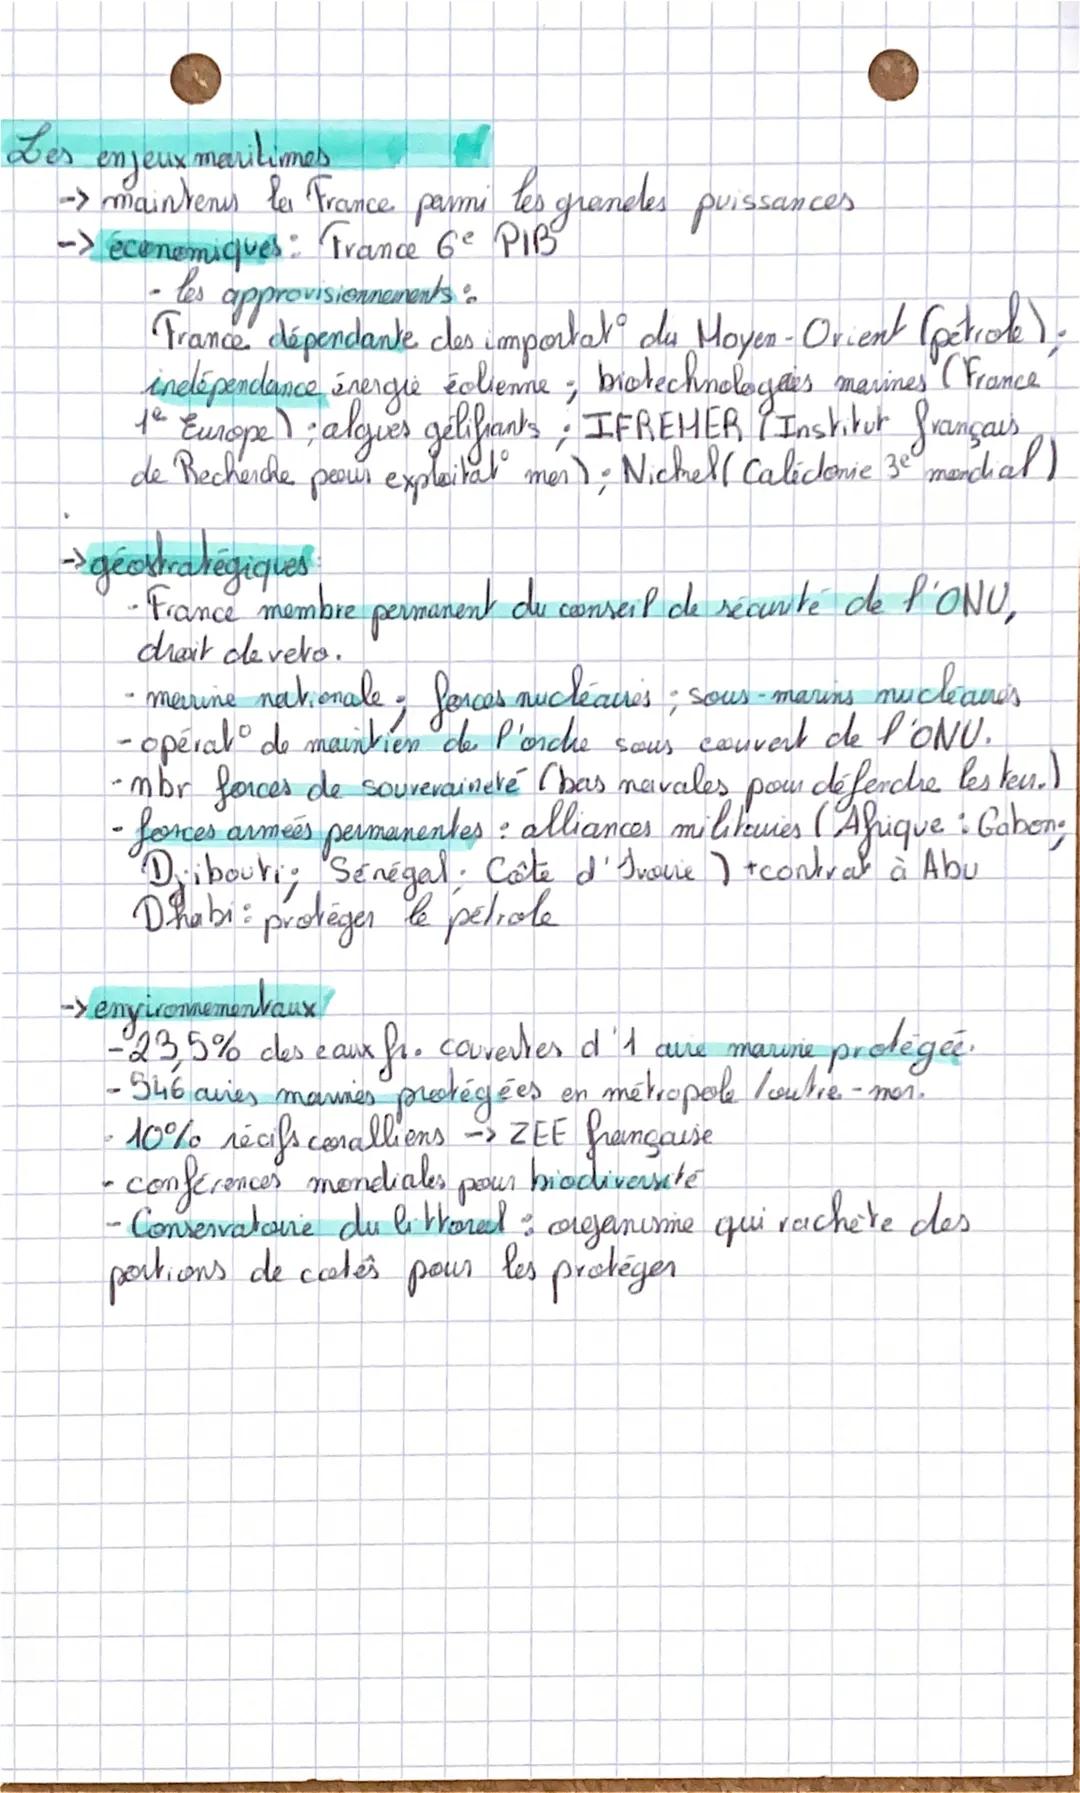 Les enjeux maritimes
-> maintenir la France parmi les grandes puissances
-> économiques : France 6e PIB
- les approvisionnements :
France dépendante des importat° du Moyen-Orient (pétrole) ;
indépendance énergie éolienne ; biotechnologies marines (France
1e Europe) ; algues gélifiants ; IFREMER (Institut français
de Recherche pour exploitat° mer) ; Nickel (Calédonie 3e mondial)
-> géostratégiques :
- France membre permanent du conseil de sécurité de l'ONU,
droit de veto.
- marine nationale ; forces nucléaires ; sous-marins nucléaires
- opérat° de maintien de l'ordre sous couvert de l'ONU.
- nbr forces de souveraineté (bas navales pour défendre les terr.)
- forces armées permanentes : alliances militaires (Afrique : Gabon ;
Djibouti ; Sénégal ; Côte d'Ivoire) + contrat à Abu
Dhabi : protéger le pétrole
-> environnementaux
- 23,5% des eaux fr. couvertes d'1 aire marine protégée.
- 546 aires marines protégées en métropole / outre-mer.
- 10% récifs coralliens -> ZEE française
- conférences mondiales pour biodiversité
- Conservatoire du littoral : organisme qui rachète des
portions de cotês pour les protéger